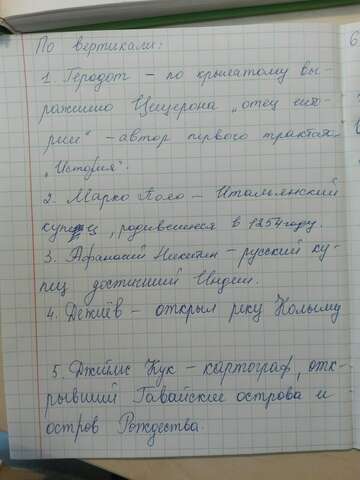 По вертикали:
1. Геродот – по крылатому вы-
ражению Цицерона „отец исто-
рии“ – автор первого трактата
„История“.
2. Марко Поло – Итальянский
купец, родившиеся в 1254 году.
3. Афанасий Никитин – русский ку-
пец достигший Индии.
4. Дежнёв – открыл реку Колыму
5. Джеймс Кук – картограф, отк-
рывший Гавайские острова и
остров Рождества.
6